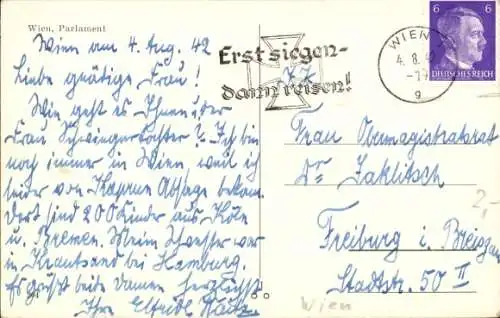 Wien, Parlament
Wien am 4. Aug. 42
Liebe gnädige Frau!
Wie geht es Ihnen u. der
Frau Schwiegertochter? Ich bin
noch immer in Wien weil ich
leider von Kaprun Absage bekam.
Dort sind 200 Kinder aus Köln
u. Bremen. Meine Schwester war
in Krautsand bei Hamburg.
Es grüßt beide Damen herzlichst
Ihre Elfriede
Erst siegen-
dann reisen!
WIEN
4. 8. 42
g
6 6
DEUTSCHES REICH
Frau Obermagistratsrat
Dr Zaklitsch
Freiburg i. Breisgau
Stadtstr. 50 II
2,-
Wien